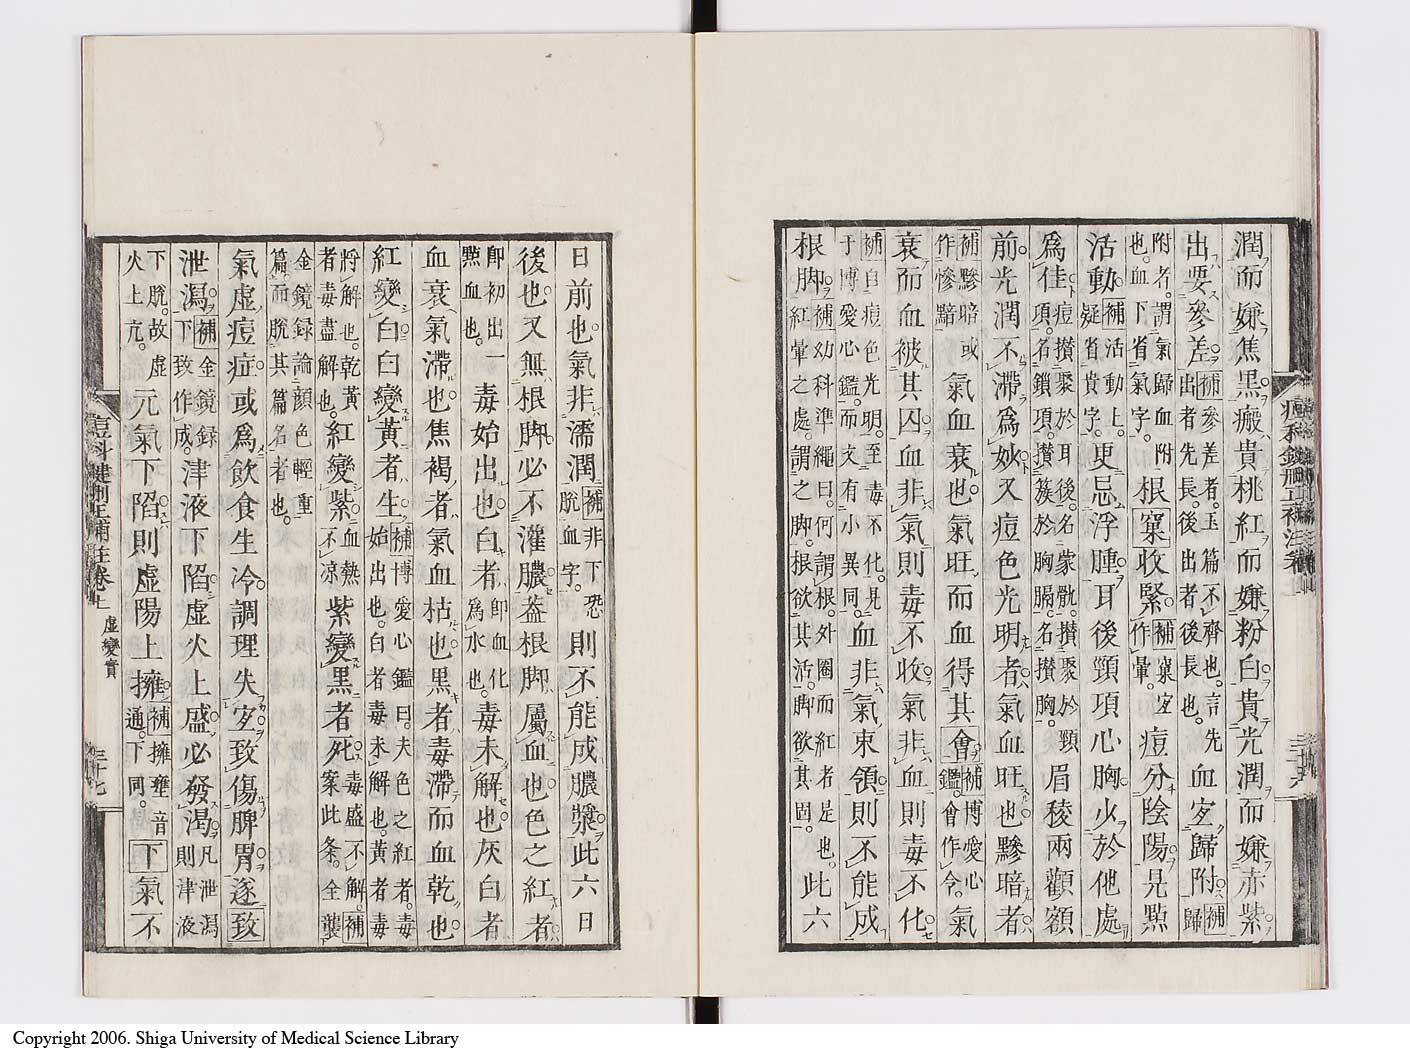 潤而嫌焦黒瘢貴桃紅而嫌粉白貴光潤而嫌赤紫
出要參差補參差者玉篇不齊也言先出者先長後出者後長也血宜歸附補歸
附者謂氣歸血附也血下省氣字根窠收緊補窠宜作暈痘分陰陽見點
活動補活動上疑省貴字更忌浮腫耳後頸項心胸少於他處
爲佳痘攢聚於耳後名蒙骩攢聚於頸項名鎖項攢簇於胸膈名攢胸眉稜兩顴額
前光潤不滯爲妙又痘色光明者氣血旺也黲暗者
補黲暗或作慘黯氣血衰也氣旺而血得其會補博愛心鑑會作令氣
衰而血被其囚血非氣則毒不收氣非血則毒不化
補自痘色光明至毒不化見于博愛心鑑而文有小異同血非氣束領則不能成
根脚補幼科準繩曰何謂根外圈而紅者是也紅暈之處謂之脚根欲其活脚欲其固此六
痘科鍵刪正補注卷上
三十六
日前也氣非濡潤補非下恐脱血字則不能成膿漿此六日
後也又無根脚必不灌膿蓋根脚屬血也色之紅者
即初出一點血也毒始出也白者即血化爲水也毒未解也灰白者
血衰氣滯也焦褐者氣血枯也黒者毒滯而血乾也
紅變白白變黃者生補博愛心鑑曰夫色之紅者毒始出也白者毒未解也黃者毒
將解也乾黃者毒盡解也紅變紫血熱不凉紫變黒者死毒盛不解補案此条全襲
金鏡録論顔色輕重篇而脱其篇名者也
氣虚痘症或爲飲食生冷調理失宜致傷脾胃遂致
泄瀉補金鏡録下致作成津液下陷虚火上盛必發渇凡泄瀉則津液
下脱故虚火上亢元氣下陷則虚陽上擁補擁壅音通下同下氣不
痘科鍵刪正補注卷上
虚變實
三十七
Copyright 2006. Shiga University of Medical Science Library